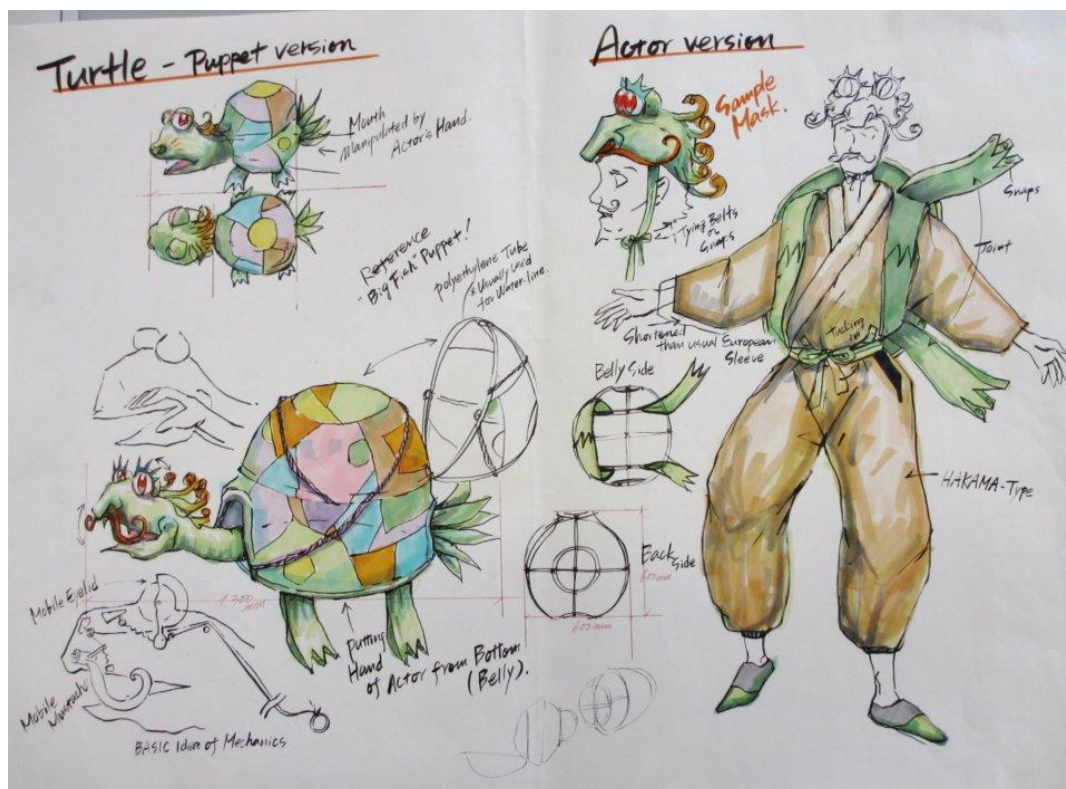 Turtle - Puppet version
Mouth
Manipulated by
Actor's Hand.
Reference
"Big Fish" Puppet!
polyethylene Tube
* Usually used
for Water line.
Mobile Eyelid
1.300
mm
Mobile
Mustache
BASIC Idea of Mechanics
Putting
Hand
of Actor from Bottom
(Belly).
Actor version
Sample
Mask.
Tying Belts
or
Snaps
Snaps
Joint
Shortened
than usual European
Sleeve
Tucking
in
Belly Side
HAKAMA-Type
Back
Side
600mm
600mm